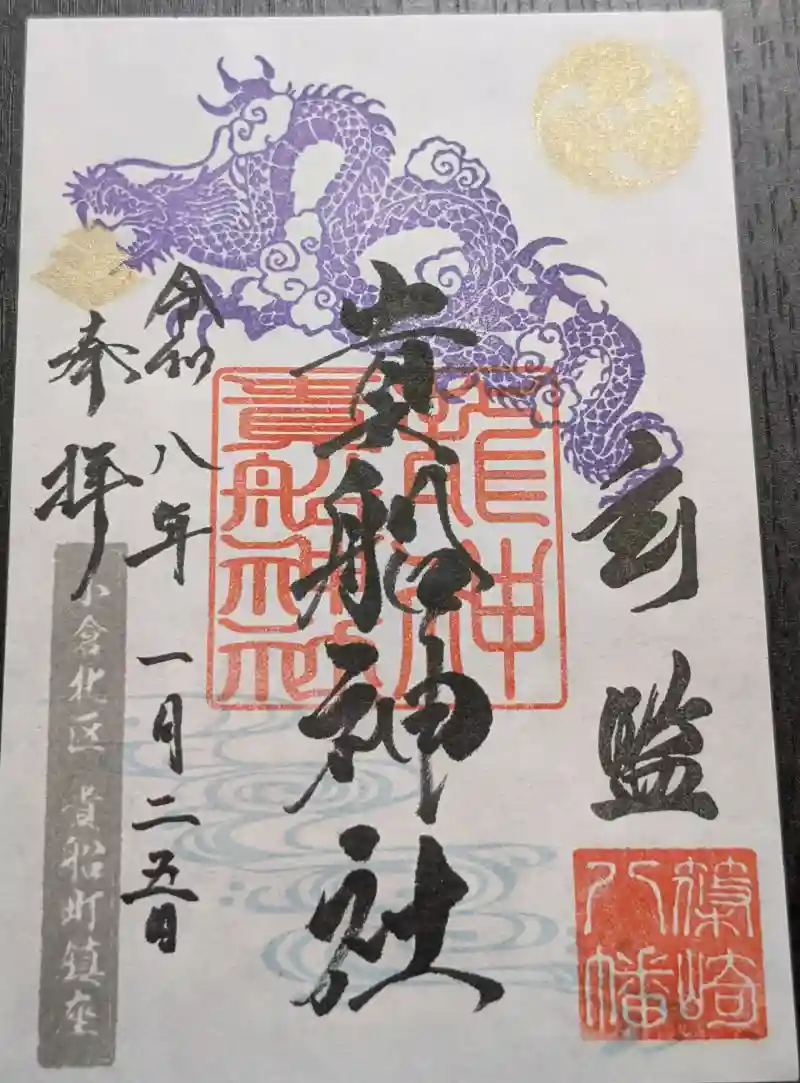 篠崎
八幡
貴船神社
龍神
貴船神社
令和八年一月二五日
奉拝
小倉北区 貴船町鎮座